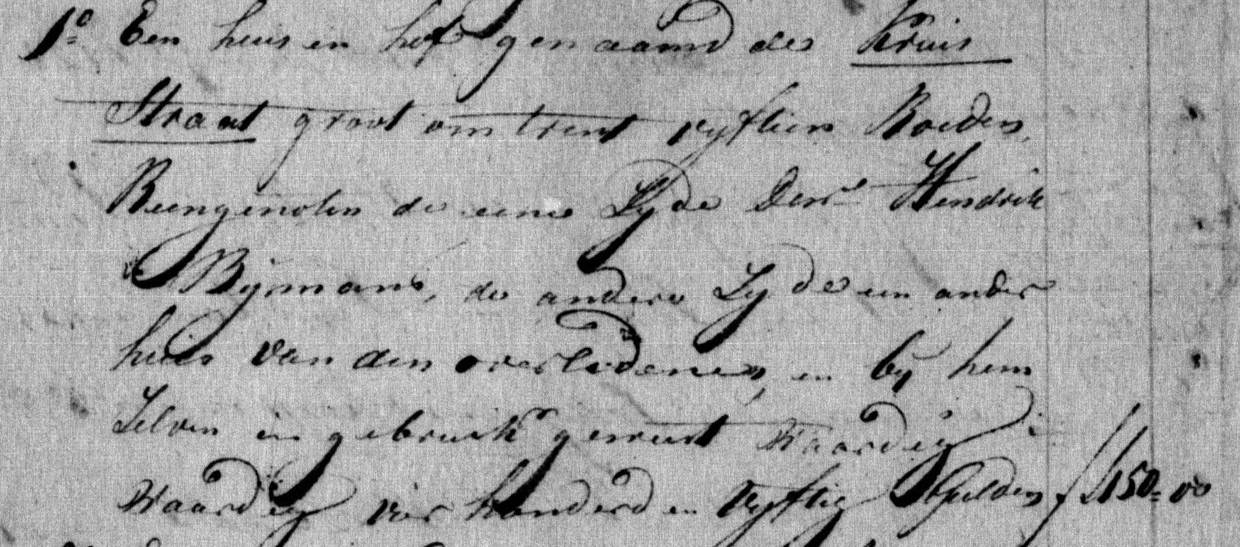 1º Een huis en hof genaamd de Kruis
Straat groot omtrent vyftien Roeden
Reengenoten de eene Zyde Den Hendrik
Bijmans, de andere Zyde een ander
huis van den overledenen, en bij hem
Zelven in gebruik geweest Waardig
Waardig vier honderd en Vyftig Gulden f 450=00